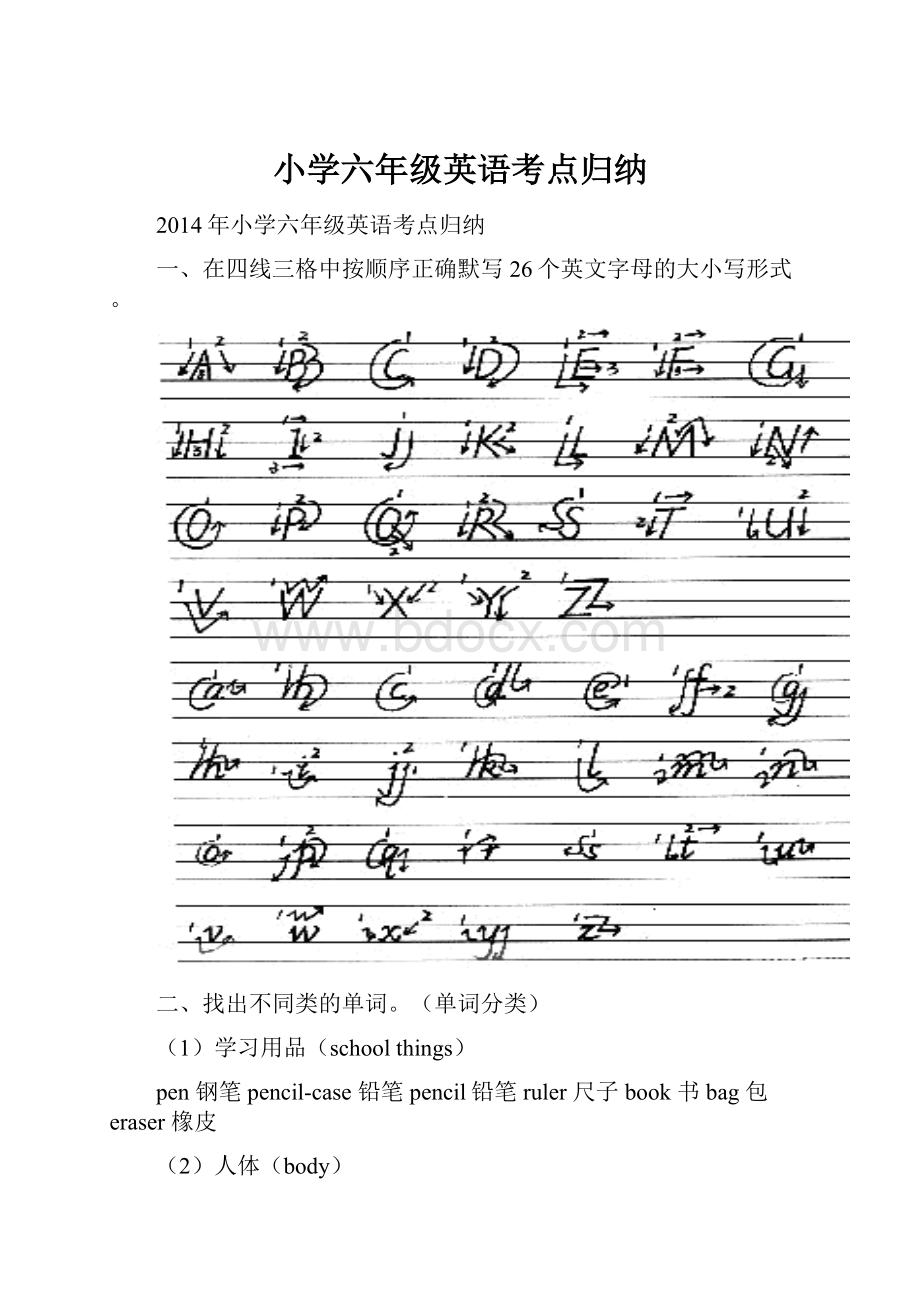 小学六年级英语考点归纳
2014年小学六年级英语考点归纳
一、在四线三格中按顺序正确默写26个英文字母的大小写形式
。
A B C D E F G
H I J K L M N
O P Q R S T U
V W X Y Z
www.bdocx.com
a b c d e f g
h i j k l m n
o p q r s t u
v w x y z
二、找出不同类的单词。（单词分类）
（1）学习用品（school things）
pen 钢笔 pencil-case 铅笔 pencil铅笔 ruler 尺子 book 书 bag 包
eraser 橡皮
（2）人体（body）